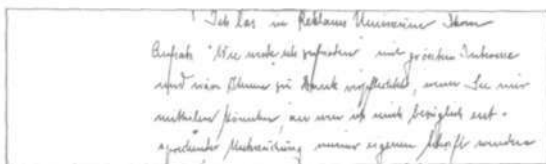 Ich las in Reklams Universum Ihren
Aufsatz "Wie werde ich zufrieden" mit grössten Interesse
und wäre Ihnen zu Dank verpflichtet, wenn Sie mir
mitteilen könnten, an wen ich mich bezüglich ent-
sprechender Untersuchung meiner eigenen Schrift wenden